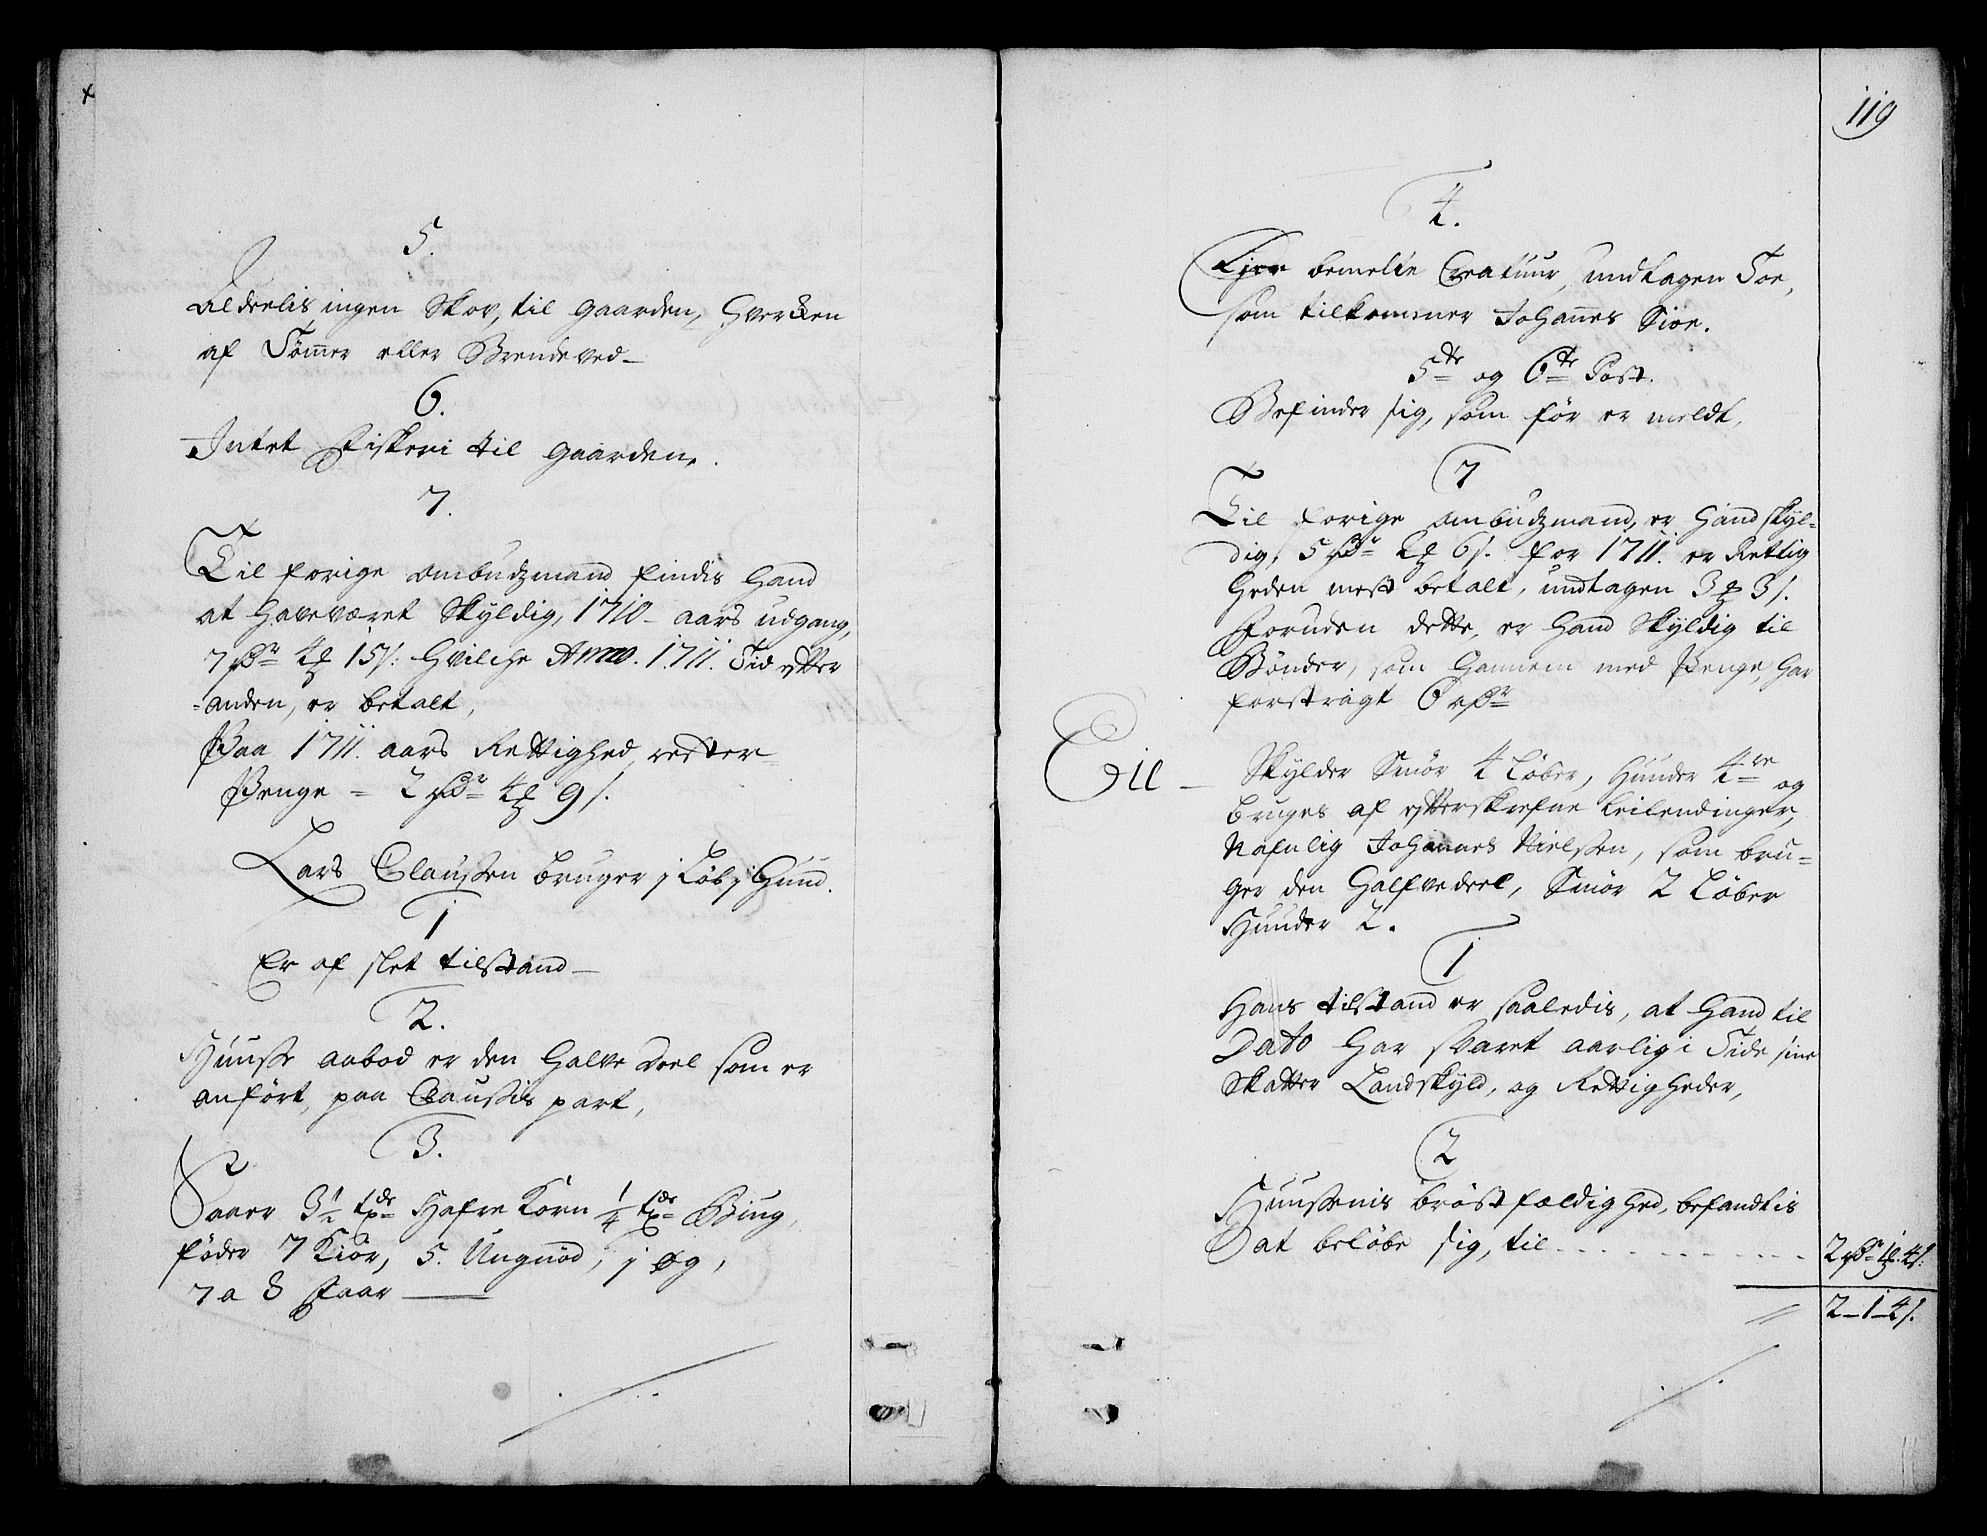 5.
Aldeelis ingen Skov, til gaarden, Hvercken
af Tømer eller Brendeved_
6.
Intet Fiskeri til gaarden.
7.
Til forige ombudzmand findis Hand
at Haveværet Skyldig, 1710_ aars udgang,
7 rdr 4 15 s: Hvilche Anno. 1711. Tid efter
anden, er betalt,
Paa 1711. aars Rettighed rester
Penge = 2 rdr 4 9 s.
Lars Claussen bruger j Løb j Hund.
1
Er af slet tilstand_
2.
Huuse aabod er den Halve deel som er
anført, paa Claussis part,
3.
Saaer 3½ tdr Hafre Korn ¼ tdr Biug,
føder 7 Kiør, 5. Ungnød, j øg,
7 a 8 Faar
119
4.
bemelte Creatuur, undtagen Toe,
som tilkommer Johanes Sioe.
5te og 6te Post.
Befinder sig, som før er meldt,
7
Til forige ombudzmand, er Hand skyl=
dig, 5 rdr 2 6 s. for 1711. er Rettig
Heden mest betalt, undtagen 3 3 s.
Foruden dette, er Hand Skyldig til
Bønder, som Hannem med Penge, Har
forstragt 6 rdr
Eil _ Skylder Smør 4 Løber, Hunder 4re og
bruges af efterskrefne Leilendinger,
Nafnlig Johannes Nielssen, som bru=
ger den Halfvedeel, Smør 2 Løber
Hunder 2.
1
Hans tilstand er saaledis, at Hand til
Dato Har svaret aarlig i Tide sine
Skatter Landskyld, og Rettigheder,
2
Huussenis brøstfældighed, befandtis
at beløbe sig, til 2 rdr 1. 4 s:
2_1_4 s.